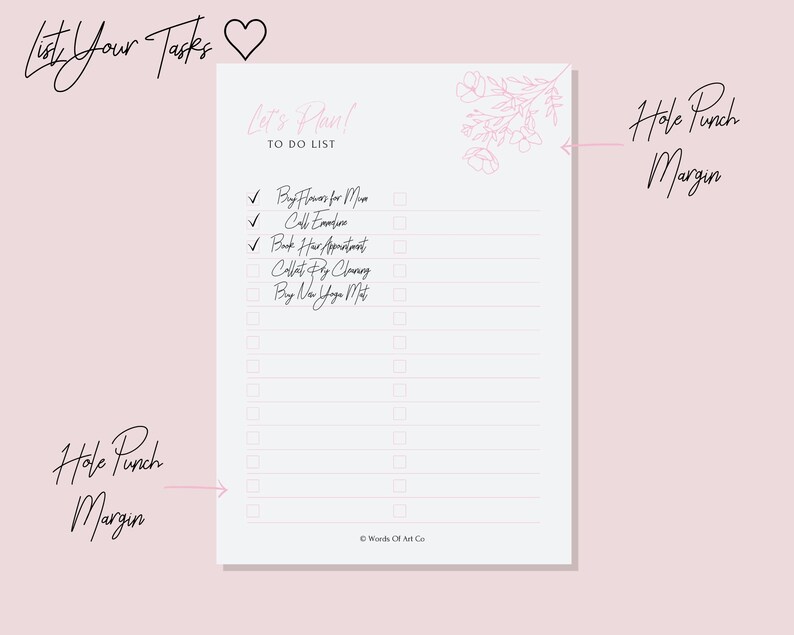 List Your Tasks
Let's Plan!
TO DO LIST
Hole Punch
Margin
Buy Flowers for Mum
Call Emmeline
Book Hair Appointment
Collect Dry Cleaning
Buy New Yoga Mat
Hole Punch
Margin
© Words Of Art Co